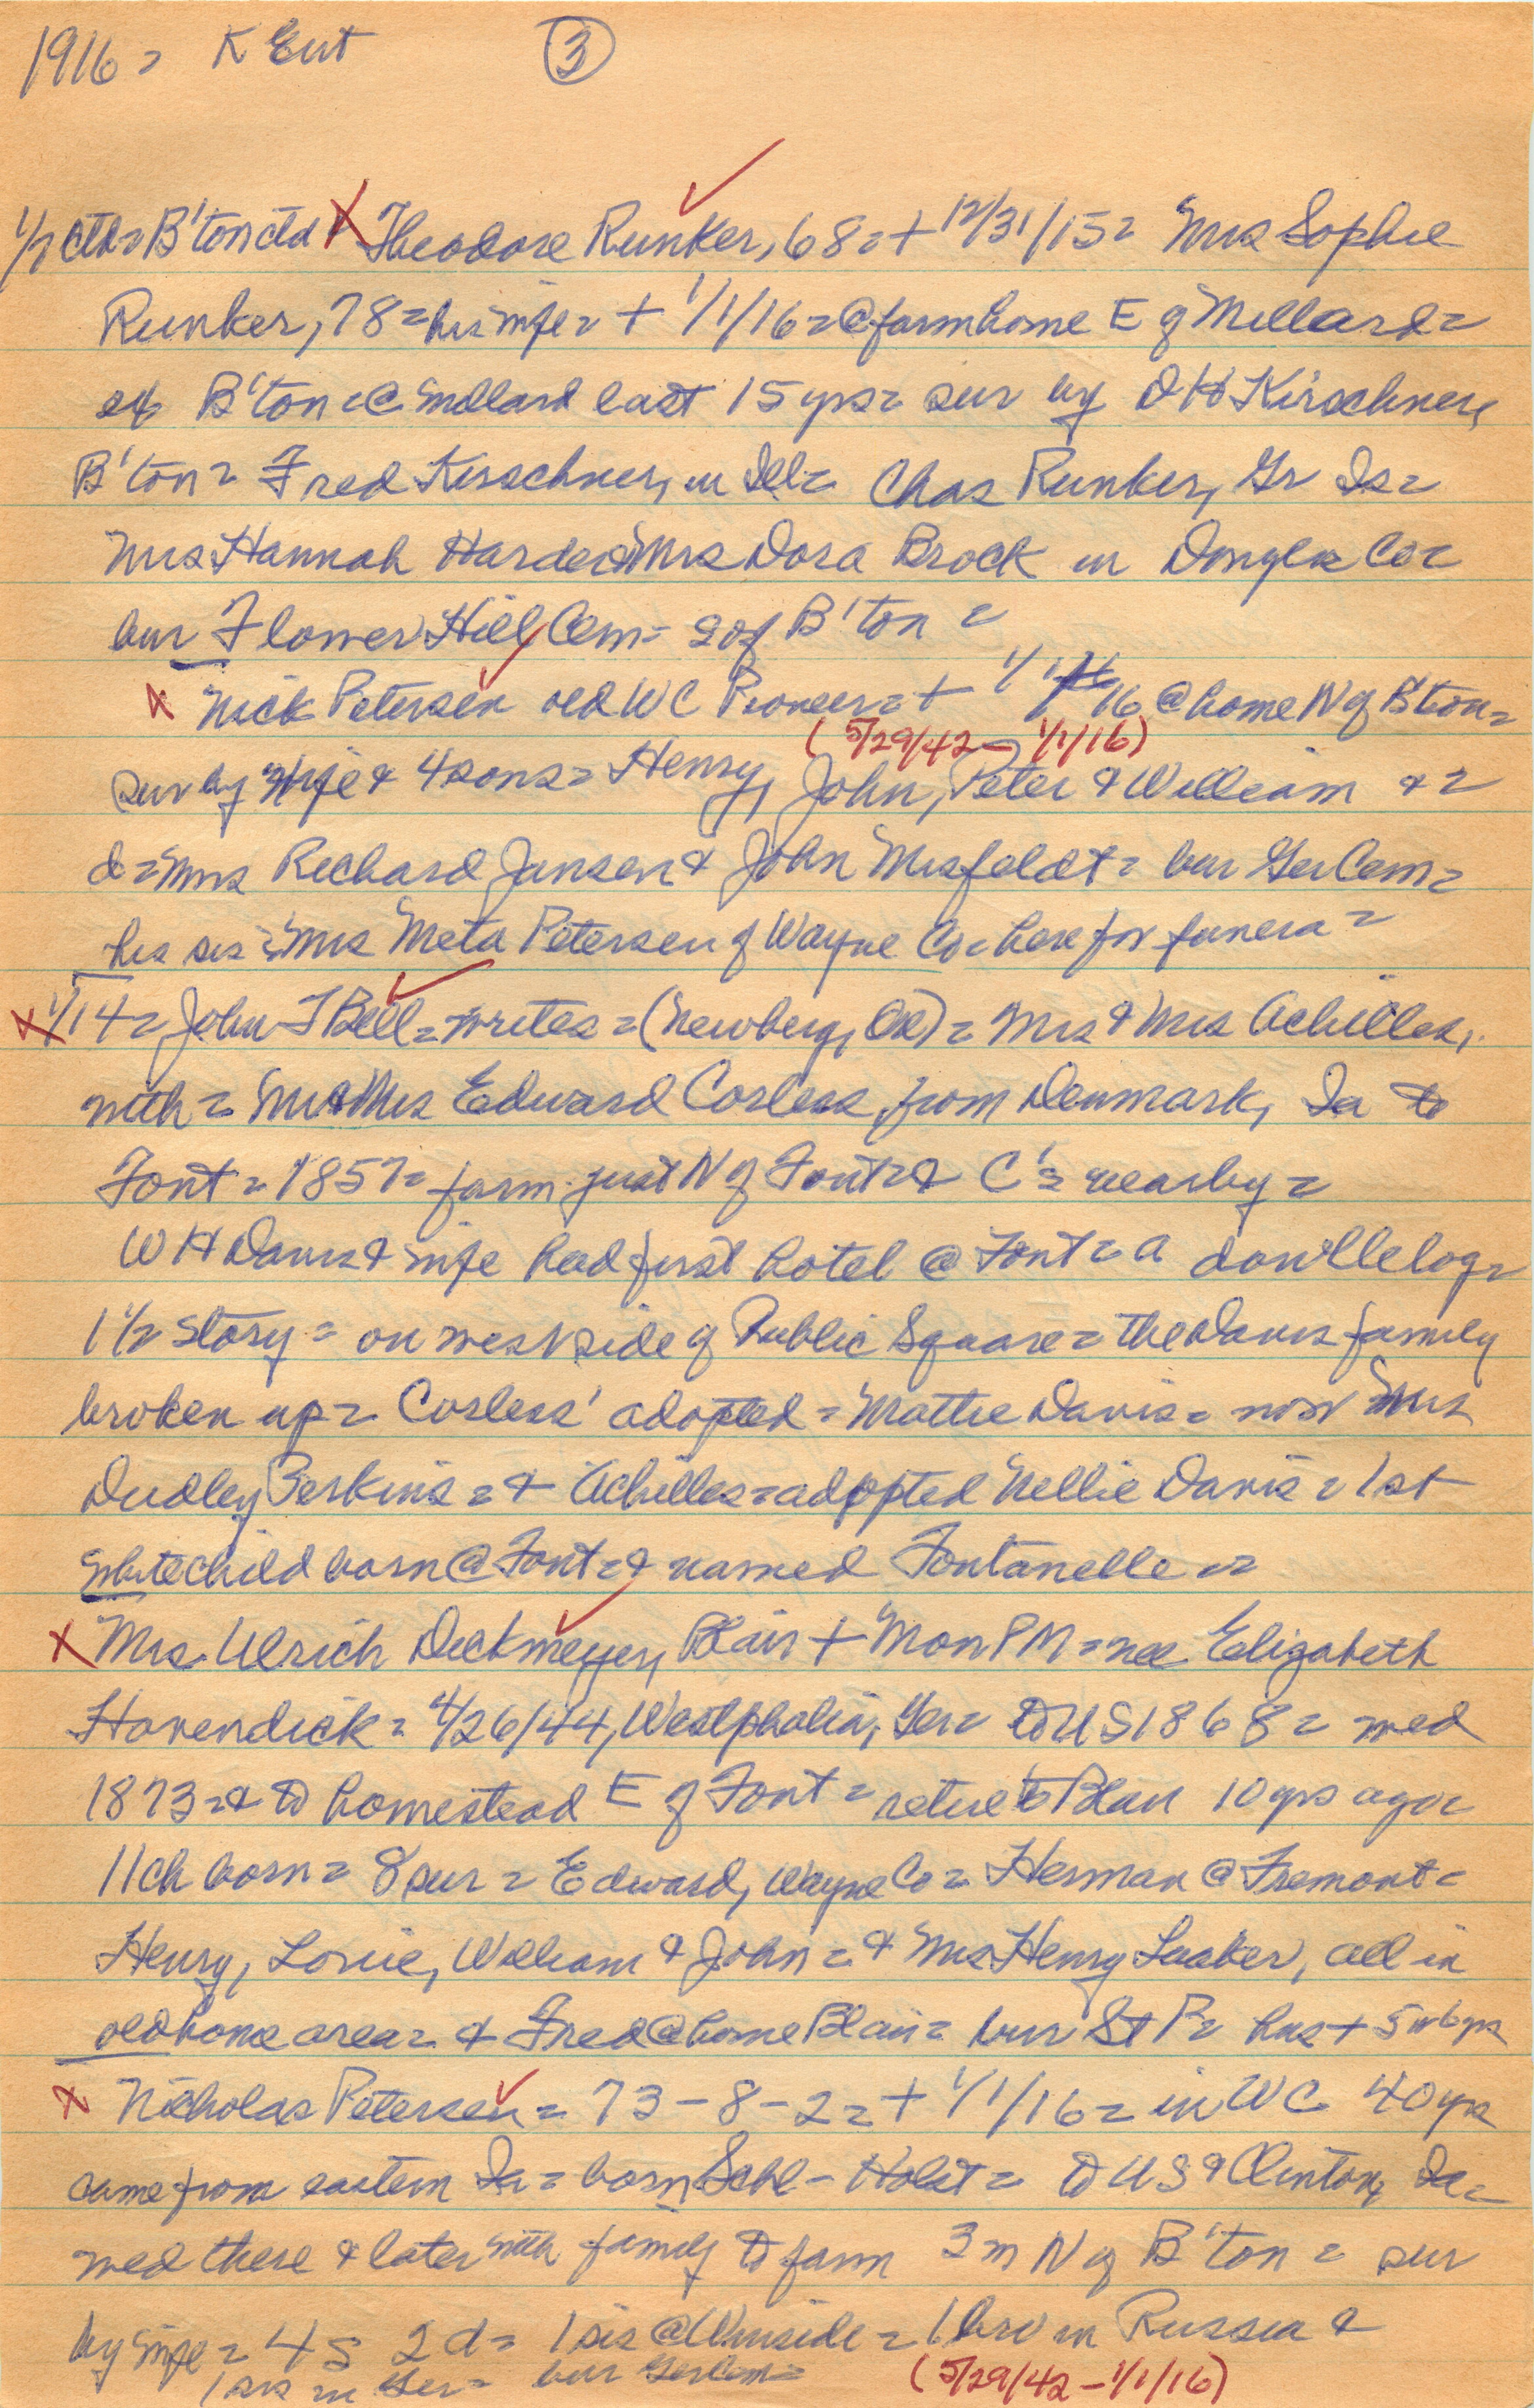 1916 = K Ent ③
1/7 ctd = B'ton ctd X Theodore Runker, 68 = + 12/31/15 = Mrs Sophie
Runker, 78 = his wife = + 1/1/16 = @ farm home E of Millard =
B'ton = @ Millard last 15 yrs = sur by D H Kirschner,
B'ton = Fred Kirschner, in Ill = Chas Runker, Gr Is =
Mrs Hannah Harder & Mrs Dora Brock in Douglas Co =
bur Flower Hill Cem = S of B'ton =
X Nick Petersen old WC Pioneer = + 1/1/16 @ home N of B'ton =
(5/29/42 - 1/1/16)
sur by wife & 4 sons = Henry, John, Peter & William & 2
d = Mrs Richard Jensen & John Misfeldt = bur Ger Cem =
his sis = Mrs Meta Petersen of Wayne Co = here for funera =
X 1/14 = John T Bell = writes = (Newberg, Or) = Mr & Mrs Achilles,
with = Mr & Mrs Edward Corless, from Denmark, Ia to
Font = 1857 = farm just N of Font = & C's nearby =
W H Davis & wife had first hotel @ Font = a double log =
1 1/2 story = on west side of Public Square = the Davis family
broken up = Corless' adopted = Mattie Davis = now Mrs
Dudley Perkins = & Achilles = adopted Nellie Davis = 1st
white child born @ Font = & named Fontanelle =
X Mrs. Ulrich Dickmeyer, Blair + Mon PM = nee Elizabeth
Hovendick = 4/26/44, Westphalia, Ger = to US 1868 = wed
1873 = & to homestead E of Font = retire to Blair 10 yrs ago =
11 ch born = 8 sur = Edward, Wayne Co = Herman @ Fremont =
Henry, Louie, William & John = & Mrs Henry Laaker, all in
old home area = & Fred @ home Blair = bur St P = hus + 5 or 6 yrs
X Nicholas Petersen = 73 - 8 - 2 = + 1/1/16 = in WC 40 yrs
came from eastern Ia = born Schl - Holst = to US & Clinton, Ia =
wed there & later with family to farm 3 m N of B'ton = sur
by wife = 4 s 2 d = 1 sis @ Winside = 1 bro in Russia &
1 sis in Ger = bur Ger Cem = (5/29/42 - 1/1/16)